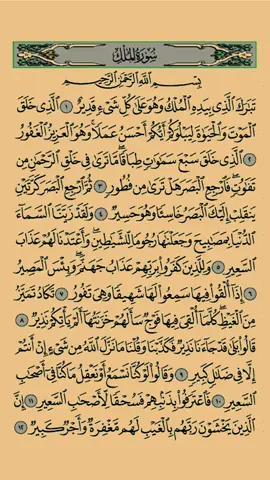 سُورَةُ المُلْكِ
بِسْمِ اللَّهِ الرَّحْمَٰنِ الرَّحِيمِ
تَبَارَكَ الَّذِي بِيَدِهِ الْمُلْكُ وَهُوَ عَلَىٰ كُلِّ شَيْءٍ قَدِيرٌ ١ الَّذِي خَلَقَ
الْمَوْتَ وَالْحَيَاةَ لِيَبْلُوَكُمْ أَيُّكُمْ أَحْسَنُ عَمَلًا وَهُوَ الْعَزِيزُ الْغَفُورُ
٢ الَّذِي خَلَقَ سَبْعَ سَمَاوَاتٍ طِبَاقًا مَّا تَرَىٰ فِي خَلْقِ الرَّحْمَٰنِ مِن
تَفَاوُتٍ فَارْجِعِ الْبَصَرَ هَلْ تَرَىٰ مِن فُطُورٍ ٣ ثُمَّ ارْجِعِ الْبَصَرَ كَرَّتَيْنِ
يَنقَلِبْ إِلَيْكَ الْبَصَرُ خَاسِئًا وَهُوَ حَسِيرٌ ٤ وَلَقَدْ زَيَّنَّا السَّمَاءَ
الدُّنْيَا بِمَصَابِيحَ وَجَعَلْنَاهَا رُجُومًا لِّلشَّيَاطِينِ وَأَعْتَدْنَا لَهُمْ عَذَابَ
السَّعِيرِ ٥ وَلِلَّذِينَ كَفَرُوا بِرَبِّهِمْ عَذَابُ جَهَنَّمَ وَبِئْسَ الْمَصِيرُ
٦ إِذَا أُلْقُوا فِيهَا سَمِعُوا لَهَا شَهِيقًا وَهِيَ تَفُورُ ٧ تَكَادُ تَمَيَّزُ
مِنَ الْغَيْظِ كُلَّمَا أُلْقِيَ فِيهَا فَوْجٌ سَأَلَهُمْ خَزَنَتُهَا أَلَمْ يَأْتِكُمْ نَذِيرٌ ٨
قَالُوا بَلَىٰ قَدْ جَاءَنَا نَذِيرٌ فَكَذَّبْنَا وَقُلْنَا مَا نَزَّلَ اللَّهُ مِن شَيْءٍ إِنْ أَنتُمْ
إِلَّا فِي ضَلَالٍ كَبِيرٍ ٩ وَقَالُوا لَوْ كُنَّا نَسْمَعُ أَوْ نَعْقِلُ مَا كُنَّا فِي أَصْحَابِ
السَّعِيرِ ١٠ فَاعْتَرَفُوا بِذَنبِهِمْ فَسُحْقًا لِّأَصْحَابِ السَّعِيرِ ١١ إِنَّ
الَّذِينَ يَخْشَوْنَ رَبَّهُم بِالْغَيْبِ لَهُم مَّغْفِرَةٌ وَأَجْرٌ كَبِيرٌ ١٢